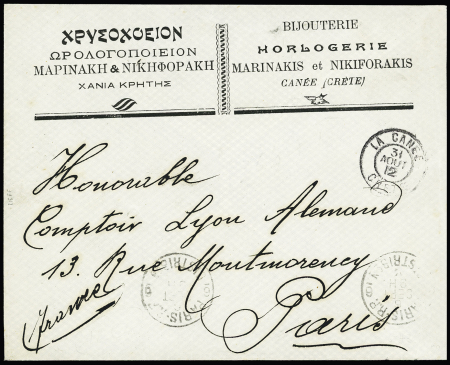 ΧΡΥΣΟΧΟΕΙΟΝ
ΩΡΟΛΟΓΟΠΟΙΕΙΟΝ
ΜΑΡΙΝΑΚΗ & ΝΙΚΗΦΟΡΑΚΗ
ΧΑΝΙΑ ΚΡΗΤΗΣ
BIJOUTERIE
HORLOGERIE
MARINAKIS et NIKIFORAKIS
CANÉE (CRÈTE)
LA CANEE
31
AOUT
12
Honorable
Comptoir Lyon Allemand
13. Rue Montmorency
Paris
France